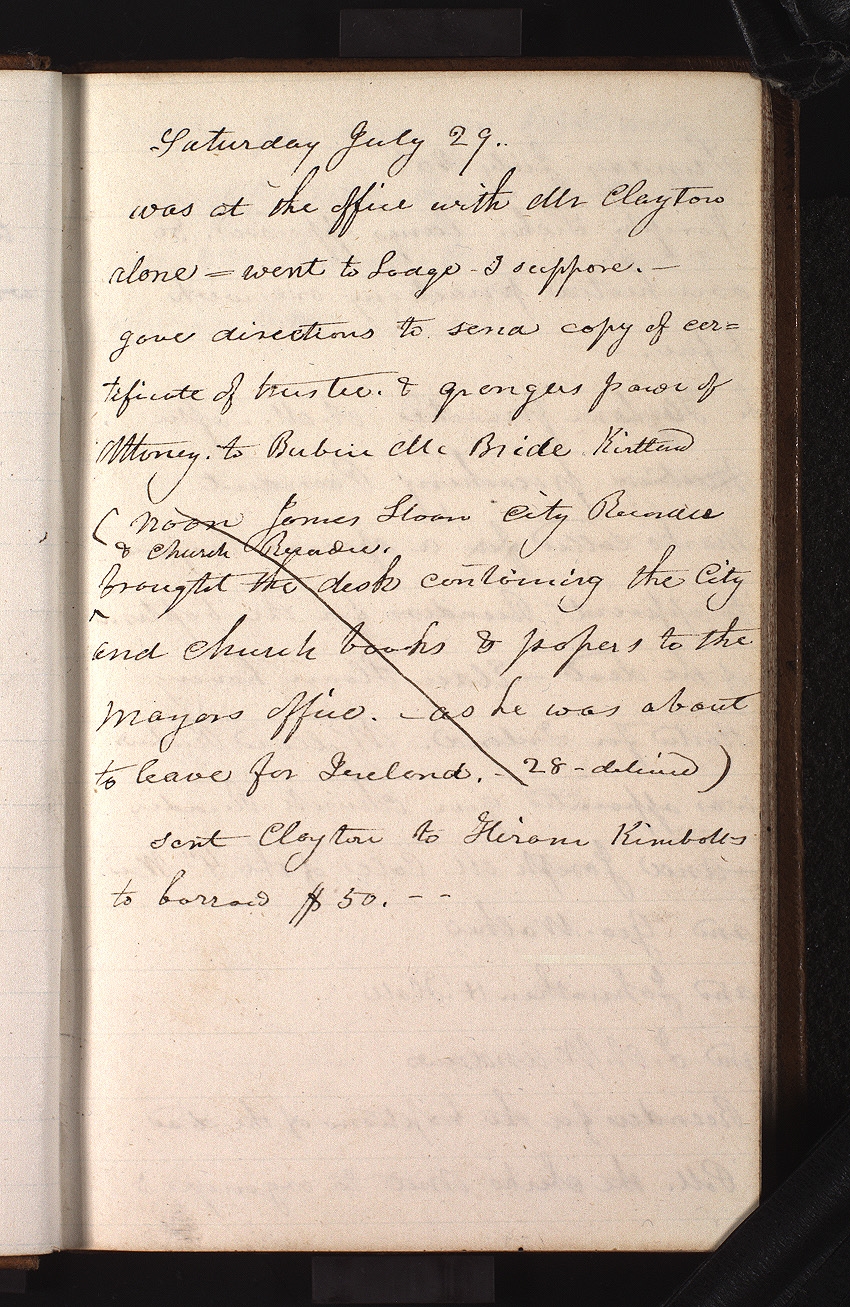 Saturday July 29..
was at the office with Mr Clayton
alone = went to Lodge - I suppose. -
gave directions to send copy of cer=
tificate of trustee. & grangers power of
Attorney. to Bubin Mc Bride Kirtland
(noon James Sloan City Recorder
& Church Recorder.
brought the desk containing the City
and church books & papers to the
mayors office. - as he was about
to leave for Ireland. - 28 - delived)
sent Clayton to Hiram Kimballs
to borrow $50. - -